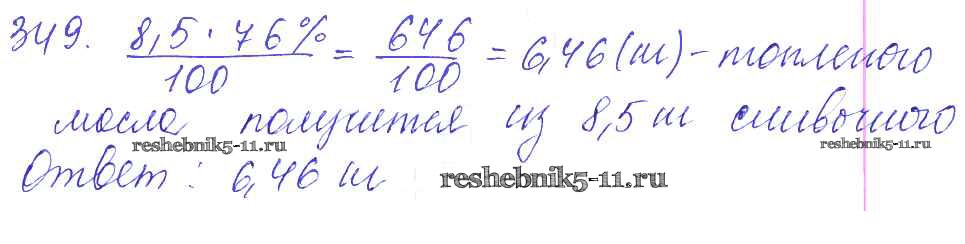 349. 8,5 · 76% / 100 = 646 / 100 = 6,46 (т) - топленого
масла получится из 8,5 т сливочного
reshebnik5-11.ru reshebnik5-11.ru
Ответ: 6,46 т reshebnik5-11.ru